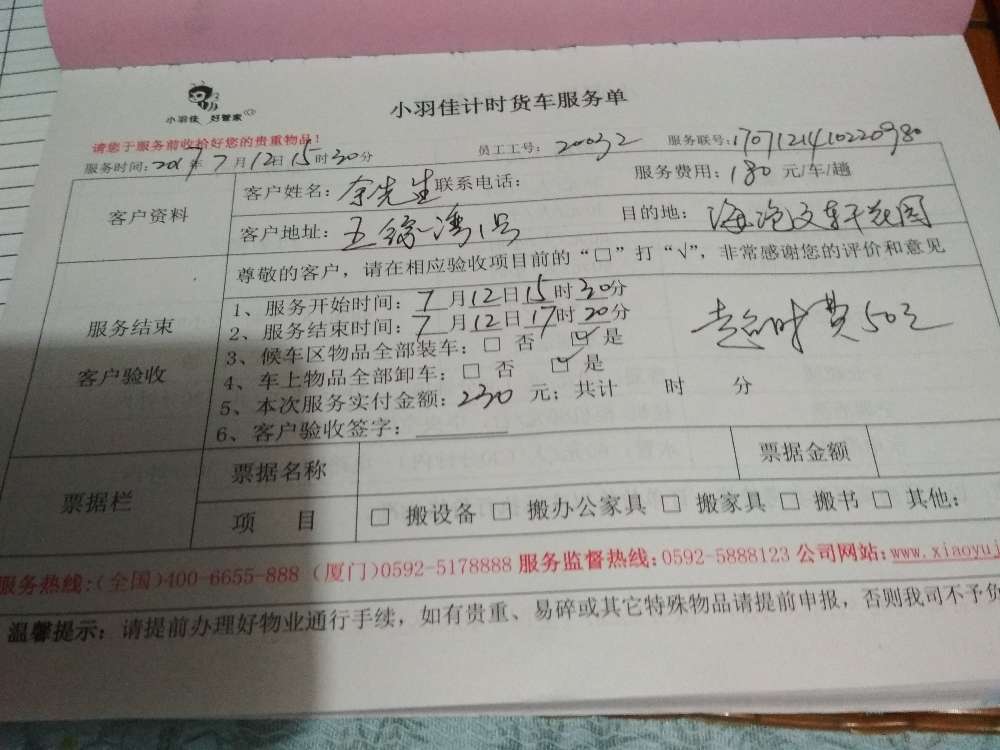 小羽佳计时货车服务单
小羽佳 好管家
请您于服务前收拾好您的贵重物品！
服务时间：2017年7月12日15时30分 员工工号：20032 服务联号：1707121410220980
客户资料
客户姓名：余先生 联系电话： 服务费用：180元/车/趟
客户地址：五缘湾1号 目的地：海沧文轩花园
服务结束
客户验收
尊敬的客户，请在相应验收项目前的“□”打“√”，非常感谢您的评价和意见
1、服务开始时间：7月12日15时30分
2、服务结束时间：7月12日17时20分
超时费50元
3、候车区物品全部装车：□ 否 ☑ 是
4、车上物品全部卸车：□ 否 ☑ 是
5、本次服务实付金额：230 元；共计 时 分
6、客户验收签字：
票据栏
票据名称 票据金额
项 目 □ 搬设备 □ 搬办公家具 □ 搬家具 □ 搬书 □ 其他：
服务热线：(全国)400-6655-888 (厦门)0592-5178888 服务监督热线：0592-5888123 公司网站：www.xiaoyuj
温馨提示：请提前办理好物业通行手续，如有贵重、易碎或其它特殊物品请提前申报，否则我司不予负